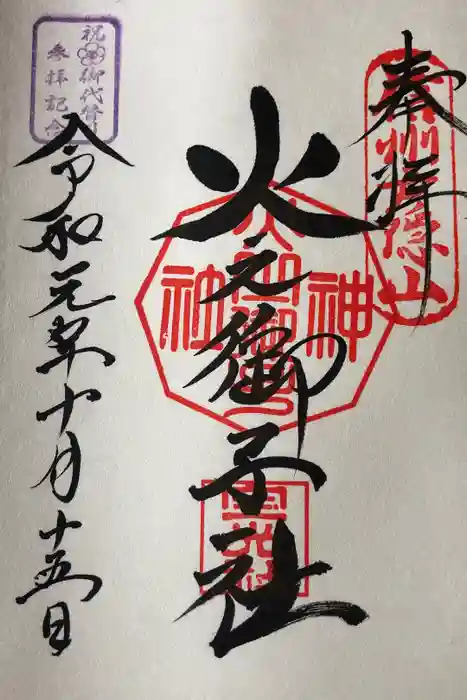 奉拝
火之御子社
令和元年十月十五日
祝 御代替
参拝記念
神社